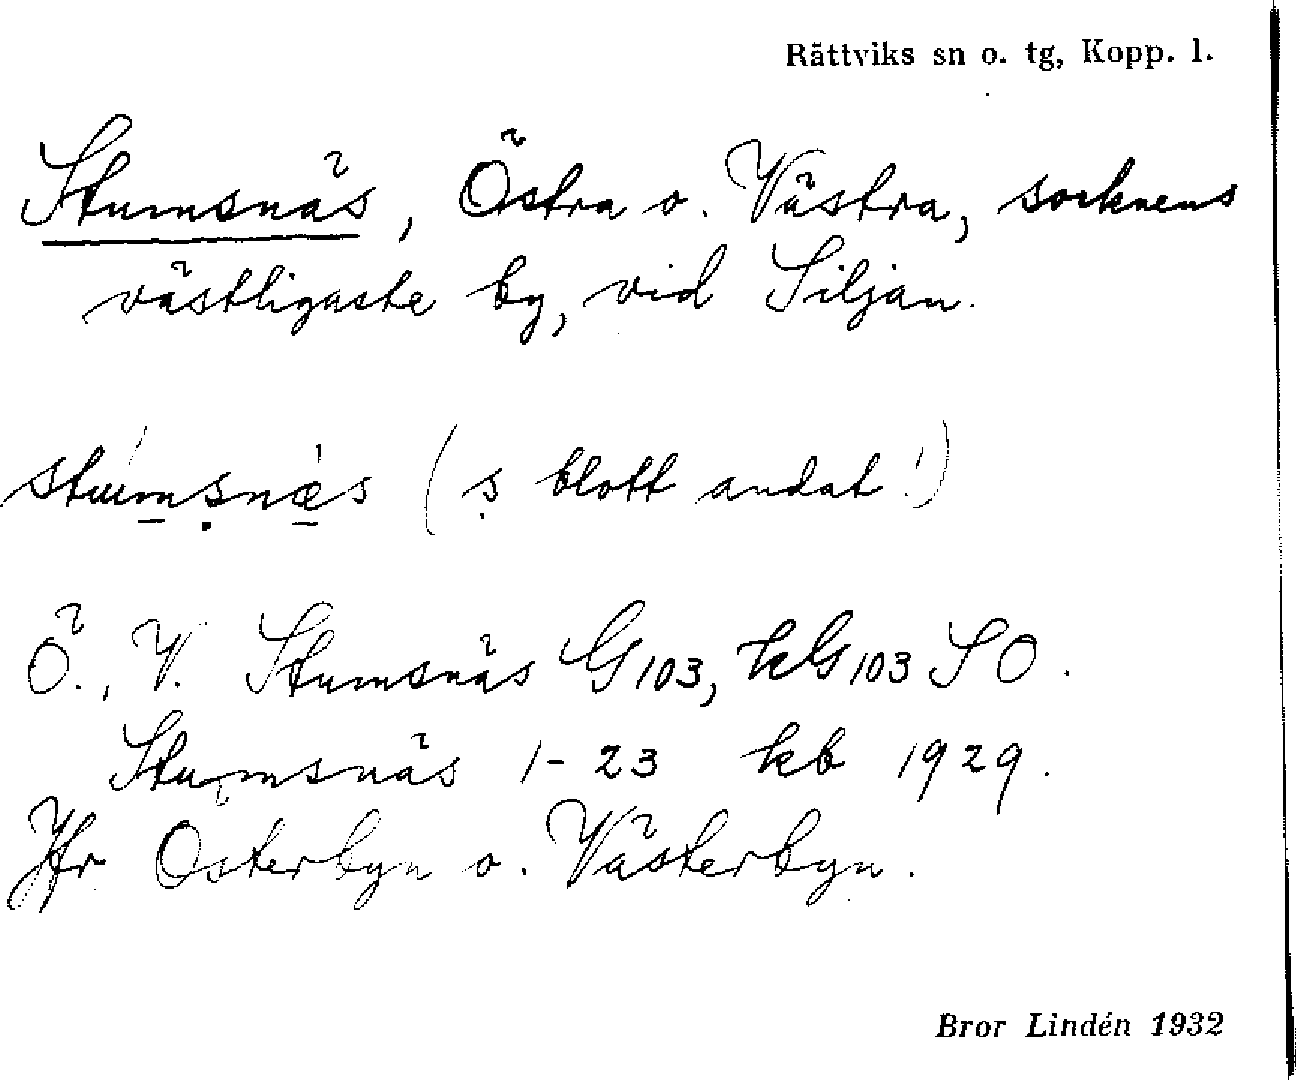 Rättviks sn o. tg, Kopp. l.
Stumsnäs, Östra o. Västra, socknens
västligaste by, vid Siljan.
stúmṣnæ̀s (ṣ blott andat!)
Ö., V. Stumsnäs G103, kG103 SO.
Stumsnäs 1-23 kb 1929.
Jfr Österbyn o. Västerbyn.
Bror Lindén 1932